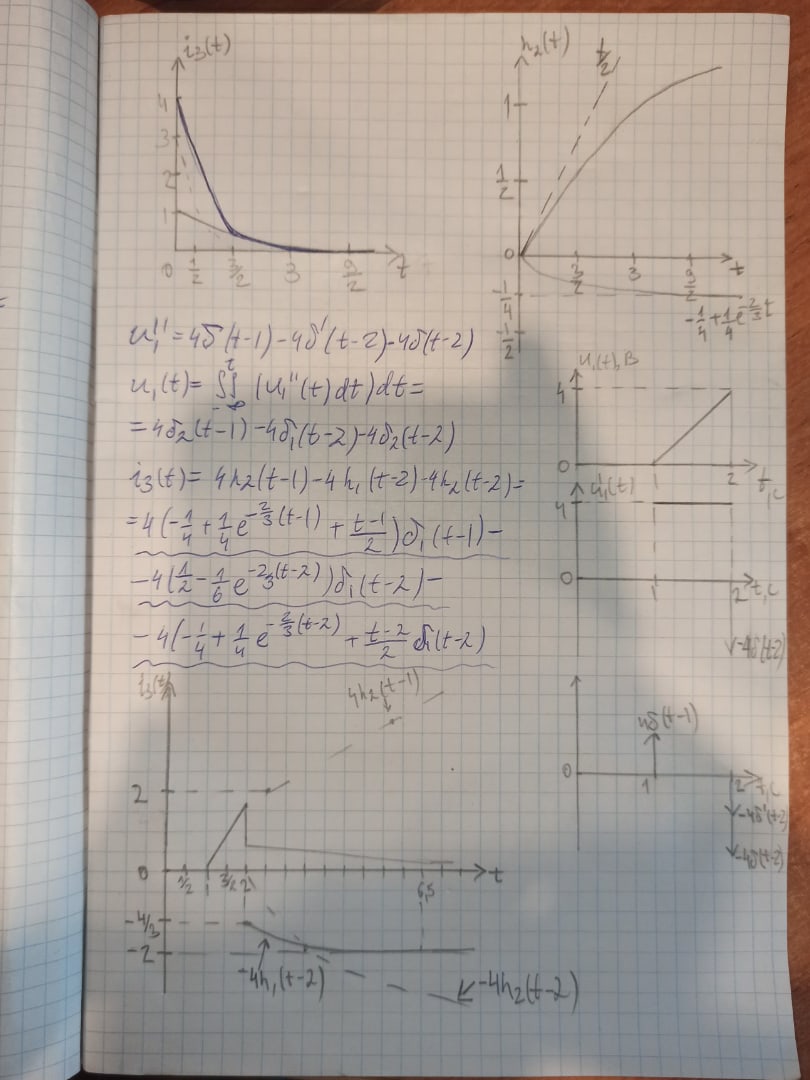 i₃(t)
4
3
2
1
0 1/2 3/2 3 9/2 t
h₂(t)
t/2
1
1/2
0
3/2 3 9/2 t
-1/4
-1/2
-1/4+1/4e^(-2/3t)
u₁''=4δ(t-1)-4δ'(t-2)-4δ(t-2)
u₁(t)=∬_{-∞}^{t}(u₁''(t)dt)dt=
=4δ₂(t-1)-4δ₁(t-2)-4δ₂(t-2)
i₃(t)=4h₂(t-1)-4h₁(t-2)-4h₂(t-2)=
=4(-1/4+1/4e^(-2/3(t-1))+(t-1)/2)δ₁(t-1)-
-4(1/2-1/6e^(-2/3(t-2)))δ₁(t-2)-
-4(-1/4+1/4e^(-2/3(t-2))+(t-2)/2δ₁(t-2)
u₁(t),В
4
0 1 2 t,с
u₁'(t)
4
0
1 2 t,с
-4δ(t-2)
4δ(t-1)
0
1 2 t,с
-4δ'(t-2)
-4δ(t-2)
i₃(t)
4h₂(t-1)
2
0 1/2 1 3/2 2 6,5 t
-4/3
-2
-4h₁(t-2)
-4h₂(t-2)